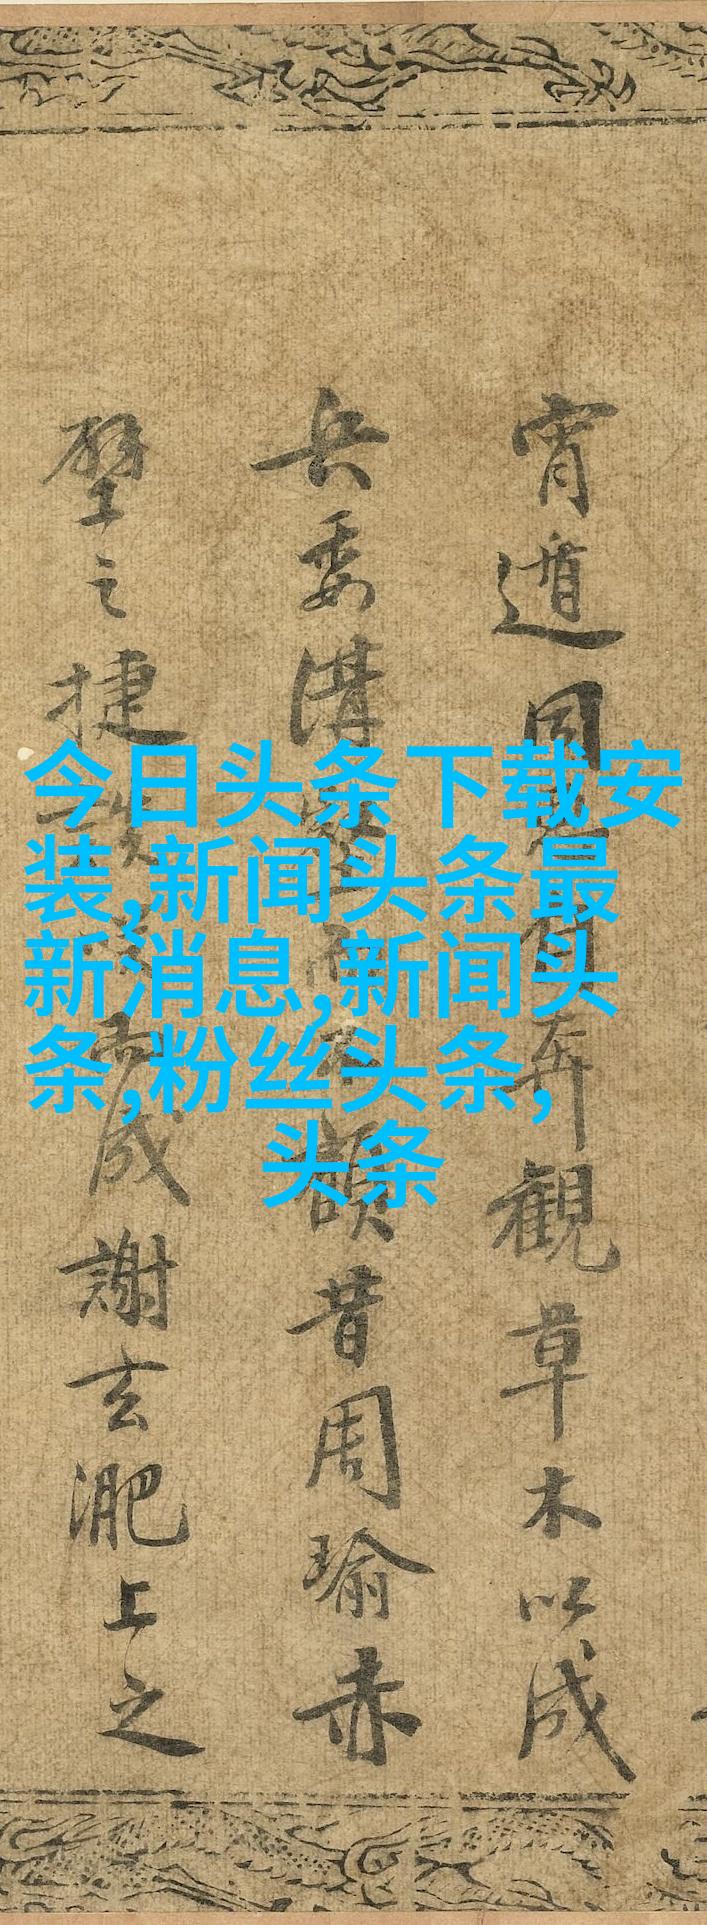 宵遁奔観草木以成
兵委溝壑而不額昔周瑜赤
壁之捷談咲而成謝玄淝上之
今日头条下载安
装,新闻头条最
新消息,新闻头
条,粉丝头条,
头条